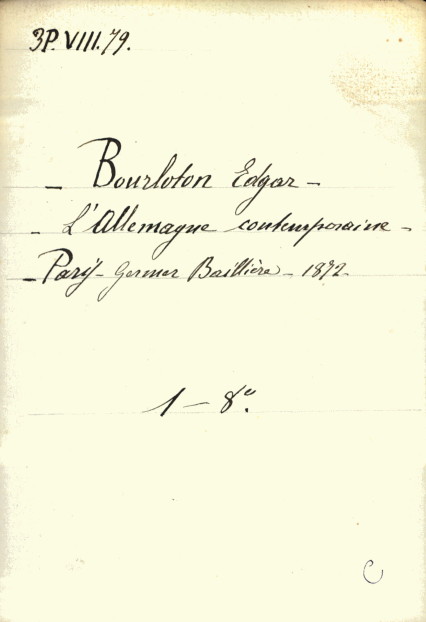 3P.VIII.79.
- Bourloton Edgar -
- L'Allemagne contemporaine -
- Paris - Germer Baillière - 1872 -
1 - 8º.
C